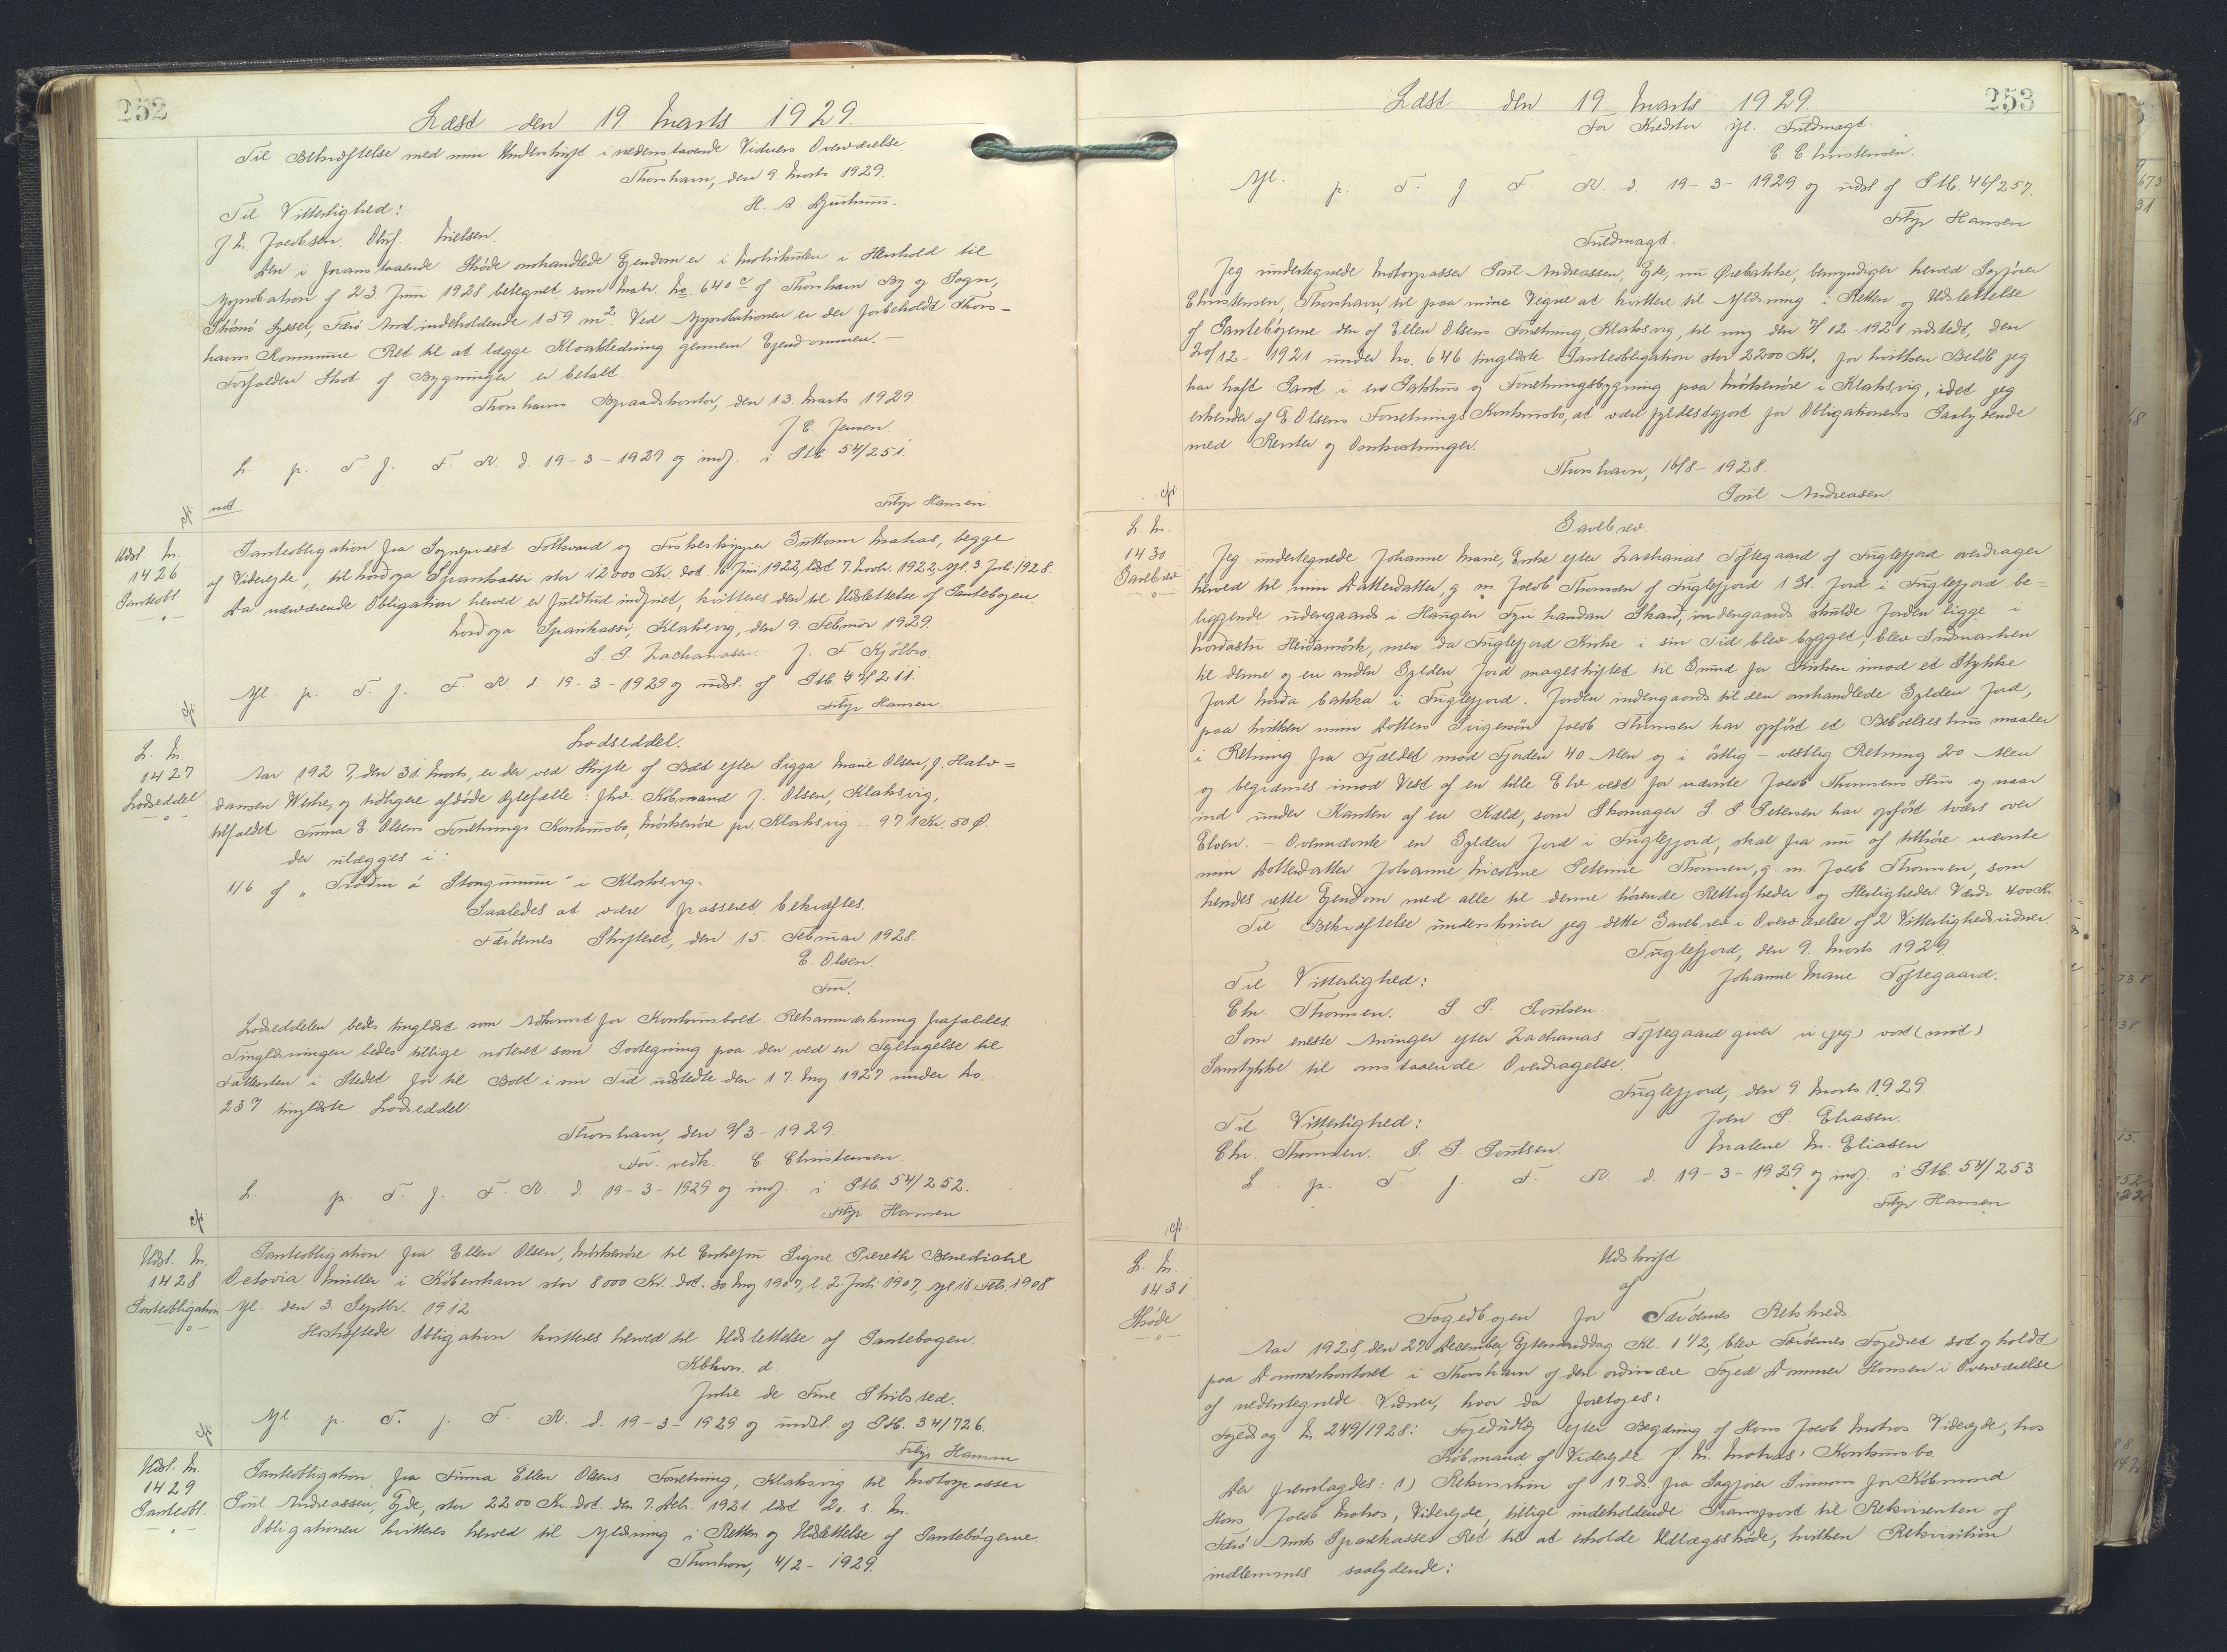 252
Læst den 19. Marts 1929.
Til Bekræftelse med min Underskrift i nedenstaaende Vidners Overværelse.
Thorshavn, den 9. Marts 1929.
Til Vitterlighed:
H. A. Djurhuus.
J. H. Jacobsen. Oluf. Nielsen.
Den i foranstaaende Skøde omhandlede Ejendom er i Matrikulen i Henhold til
Approbation af 23 Juni 1928 betegnet som Matr. No. 640 c af Thorshavn By og Sogn,
Strømø Syssel, Færø Amt indeholdende 159 m². Ved Approbationen er der forbeholdt Thors-
havns Kommune Ret til at lægge Kloakledning gennem Ejendommen. -
Forfalden Skat af Bygninger er betalt.
Thorshavns Byraadskontor, den 13. Marts 1929.
J. C. Jensen.
L. p. T. f. F. R. d. 19-3-1929 og indf. i Ptb. 54/251.
Filip Hansen
Udsl. M.
1426
Panteobl.
Panteobligation fra Sognepræst Falkvard og Fiskeskipper Guttorm Matras, begge
af Viderejde, til Nordoya Sparikassi stor 12000 Kr. dat. 16 Juni 1922, læst 7. Novbr. 1922, afl. 3. Juli 1928.
Da nærværende Obligation herved er fuldtud indfriet, kvitteres den til Udslettelse af Pantebogen.
Nordoya Sparikassi, Klaksvig, den 9. Februar 1929.
J. F. Kjølbro.
Afl. p. T. f. F. R. d. 19-3-1929 og udsl. af Ptb. 47/211.
Filip Hansen.
L. M.
1427
Lodseddel
Lodseddel.
Aar 1927, den 31. Marts, er der ved Skifte af Boet efter Sigga Marie Olsen, f. Halv-
dansen Weihe, og tidligere afdøde Ægtefælle: fhv. Købmand J. Olsen, Klaksvig,
tilfaldet Firma E. Olsens Forretnings Konkursbo, Mørkenøre pr. Klaksvig .. 971 Kr. 50 Ø.
der udlægges i:
1/6 af "Trødin á Stongunum" i Klaksvig.
Saaledes at være passeret, bekræftes.
Færøernes Skifteret, den 15. Februar 1928.
E. Olsen.
Fm.
Lodseddelen bedes tinglæst som Adkomst for Konkursboet. Retsanmærkning frafaldes.
Tinglæsningen bedes tillige noteret som Paategning paa den ved en Fejltagelse til
i Stedet for til Boet i sin Tid udstedte den 17. Maj 1927 under No.
237 tinglæste Lodseddel
Thorshavn, den 9/3-1929.
For vedk. E. Christensen.
L. p. T. f. F. R. d. 19-3-1929 og indf. i Ptb. 54/252.
Filip Hansen
Udsl. M.
1428
Panteobligation
Panteobligation fra Ellen Olsen, Mørkenøre til Enkefru Signe Benedicte
Octovia Müller i København stor 8000 Kr. dat. 30 Maj 1907, l. 2. Juli 1907, afl. 18. Feb. 1908
Afl. den 3. Septbr. 1912.
Hoshæftede Obligation kvitteres herved til Udslettelse af Pantebogen.
Kbhvn. d.
Julie de Fine Skibsted.
Afl. p. T. f. F. R. d. 19-3-1929 og undsl. af Ptb. 34/726.
Filip Hansen
Udsl. M.
1429
Panteobl.
Panteobligation fra Firma Ellen Olsens Forretning, Klaksvig til Motorpasser
Poul Andreassen, Ejde, stor 2200 Kr. dat. den 7. Debr. 1921 læst 20. s. M.
Obligationen kvitteres herved til Aflæsning i Retten og Udslettelse af Pantebøgerne.
Thorshavn, 4/2-1929.
253
Læst den 19. Marts 1929.
For Kreditor ifl. Fuldmagt.
E. Christensen.
Afl. p. T. f. F. R. d. 19-3-1929 og udsl. af Ptb. 46/257.
Filip Hansen
Fuldmagt.
Jeg undertegnede Motorpasser Poul Andreassen, Ejde, nu Ørebakke, bemyndiger herved Sagfører
Christensen, Thorshavn, til paa mine Vegne at kvittere til Aflæsning i Retten og Udslettelse
af Pantebøgerne den af Ellen Olsens Forretning, Klaksvig, til mig den 7/12-1921 udstedt, den
20/12-1921 under No. 646 tinglæste Panteobligation stor 2200 Kr. for hvilken Beløb jeg
har haft Pant i en Pakhus og Forretningsbygning paa Mørkenøre i Klaksvig, idet jeg
erkender af E. Olsens Forretnings Konkursbo, at være fyldestgjort for Obligationens Paalydende
med Renter og Omkostninger.
Thorshavn, 16/8-1928.
Poul Andreasen.
L. M.
1430
Gavebrev
Gavebrev.
Jeg undertegnede Johanne Marie, Enke efter Zacharias Toftegaard af Fuglefjord overdrager
herved til min Datterdatter, g. m. Jacob Thomsen af Fuglefjord 1 Gl. Jord i Fuglefjord be-
liggende udengaards i Haugen Fyri handan Skard, indengaards skulde Jorden ligge i
Nordastu Heidamørk, men da Fuglefjord Kirke i sin Tid blev bygget, blev Indmarken
til denne og en anden Gylden Jord mageskiftet til Grund for Kirken imod et Stykke
Jord Norda Bakka i Fuglefjord. Jorden indengaards til den omhandlede Gylden Jord,
paa hvilken min Datters Svigersøn Jacob Thomsen har opført et Beboelseshus maaler
i Retning fra Fjældet mod Fjorden 40 Alen og i østlig - vestlig Retning 20 Alen
og begrænses imod Vest af en lille Elv vest for nævnte Jacob Thomsens Hus og naar
ind under Kanten af en Kæld, som Skomager S. P. Petersen har opført tværs over
Elven. - Ovennævnte en Gylden Jord i Fuglefjord, skal fra nu af tilhøre nævnte
min Datterdatter Johanne Nicoline Petrine Thomsen, g. m. Jacob Thomsen, som
hendes rette Ejendom med alle til denne hørende Rettigheder og Herligheder. Værdi 400 Kr.
Til Bekræftelse underskriver jeg dette Gavebrev i Overværelse af 2 Vitterlighedsvidner.
Fuglefjord, den 9. Marts 1929.
Til Vitterlighed:
Johanne Marie Toftegaard.
Chr. Thomsen. S. P. Poulsen.
Som eneste Arvinger efter Zacharias Toftegaard giver vi (jeg) vort (mit)
Samtykke til omstaaende Overdragelse.
Fuglefjord, den 9. Marts 1929.
Til Vitterlighed:
John P. Eliasen.
Chr. Thomsen. S. P. Poulsen.
Malene M. Eliasen
L. p. T. f. F. R. d. 19-3-1929 og indf. i Ptb. 54/253
Filip Hansen
L. M.
1431
Skøde
Udskrift
af
Fogedbogen for Færøernes Retskreds.
Aar 1928, den 27. December, Eftermiddag Kl. 1 1/2, blev Færøernes Fogedret sat og holdt
paa Dommerkontoret i Thorshavn af den ordinære Foged Dommer Hansen i Overværelse
af nedentegnede Vidner, hvor da foretoges:
Fogedsag M. 249/1928: Fogedudlæg efter Begæring af Hans Jacob Matras Viderejde, hos
Købmand af Viderejde J. M. Matras' Konkursbo.
Der fremlagdes: 1) Rekvisition af 17. ds. fra Sagfører Simonsen for Købmand
Hans Jacob Matras, Viderejde, tillige indeholdende Transport til Rekvirenten af
Færø Amts Sparekasses Ret til at erholde Udlægsskøde, hvilken Rekvisition
indlemmes saalydende: